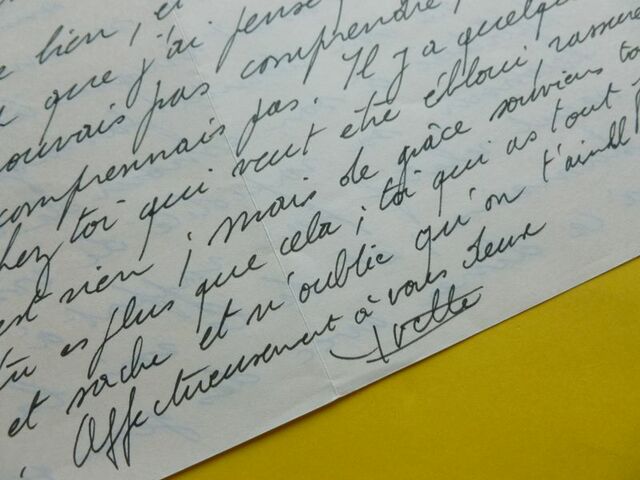 e bien, et
que j'ai pensé
ouvais pas comprendre,
comprennais pas. Il y a quelqu
hez toi qui veut être ébloui, rassuré
est rien ; mais de grâce souviens to
tu es plus que cela ; toi qui as tout
et sache et n'oublie qu'on t'aime
Affectueusement à vous deux
Yvette